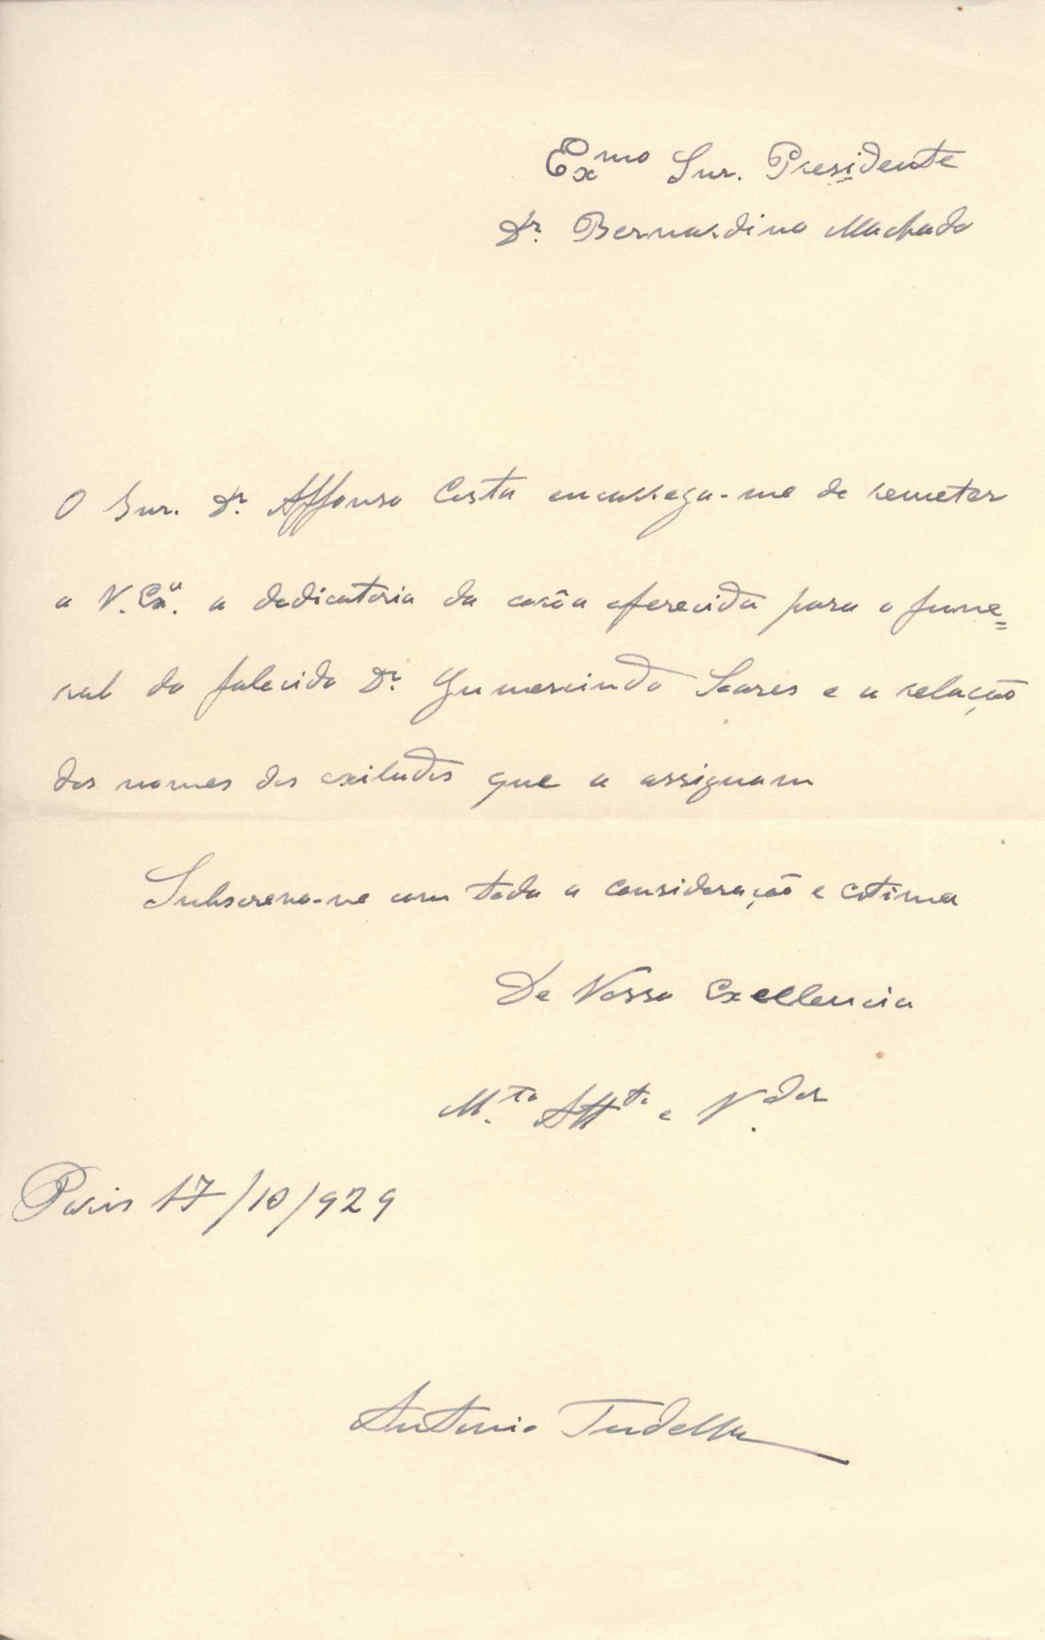 Exmo Snr. Presidente
Dr. Bernardino Machado
O Snr. Dr. Affonso Costa encarrega-me de remeter
a V. Exa. a dedicatória da corôa oferecida para o fune=
ral do falecido Dr. Gumersindo Soares e a relação
dos nomes dos exilados que a assignam
Subscrevo-me com toda a consideração e estima
De Vossa Exellencia
M.to Att.to e V.dor
Paris 17/10/929
Antonio Tudella